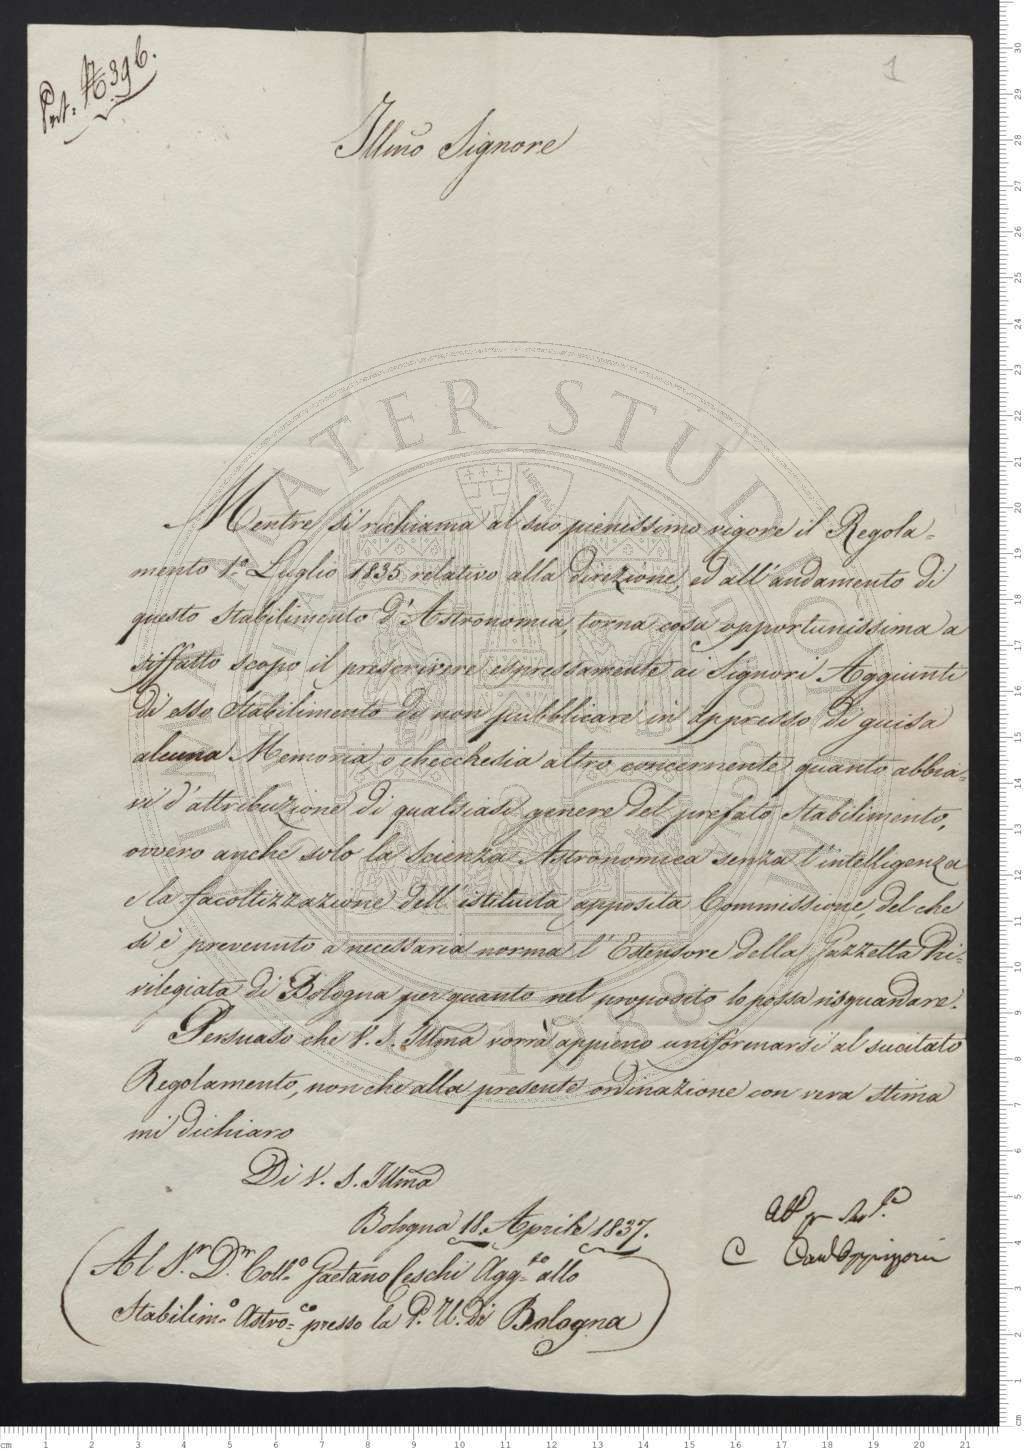 Prot. N. 396.
1
Illmo Signore
Mentre si richiama al suo pienissimo vigore il Regola-
mento 1.o Luglio 1835 relativo alla direzione, ed all'andamento di
questo Stabilimento d'Astronomia, torna cosa opportunissima a
siffatto scopo il prescrivere espressamente ai Signori Aggiunti
di esso Stabilimento di non pubblicare in appresso di guisa
alcuna Memoria o checchesia altro concernente quanto abbia-
vi d'attribuzione di qualsiasi genere del prefato Stabilimento,
ovvero anche solo la Scienza Astronomica senza l'intelligenza
e la facoltizzazione dell'istituita apposita Commissione, del che
si è prevenuto a necessaria norma l'Estensore della Gazzetta Pri-
vilegiata di Bologna per quanto nel proposito lo possa risguardare.
Persuaso che V. S. Illma vorrà appieno uniformarsi al sucitato
Regolamento, non che alla presente ordinazione con vera stima
mi dichiaro
Di V. S. Illma
Bologna 18. Aprile 1837.
C
Al S.r D.r Coll.o Gaetano Ceschi Agg.to allo
Stabilim.o Astro.co presso la P. U. di Bologna
ALMA MATER STUDIORUM
1088